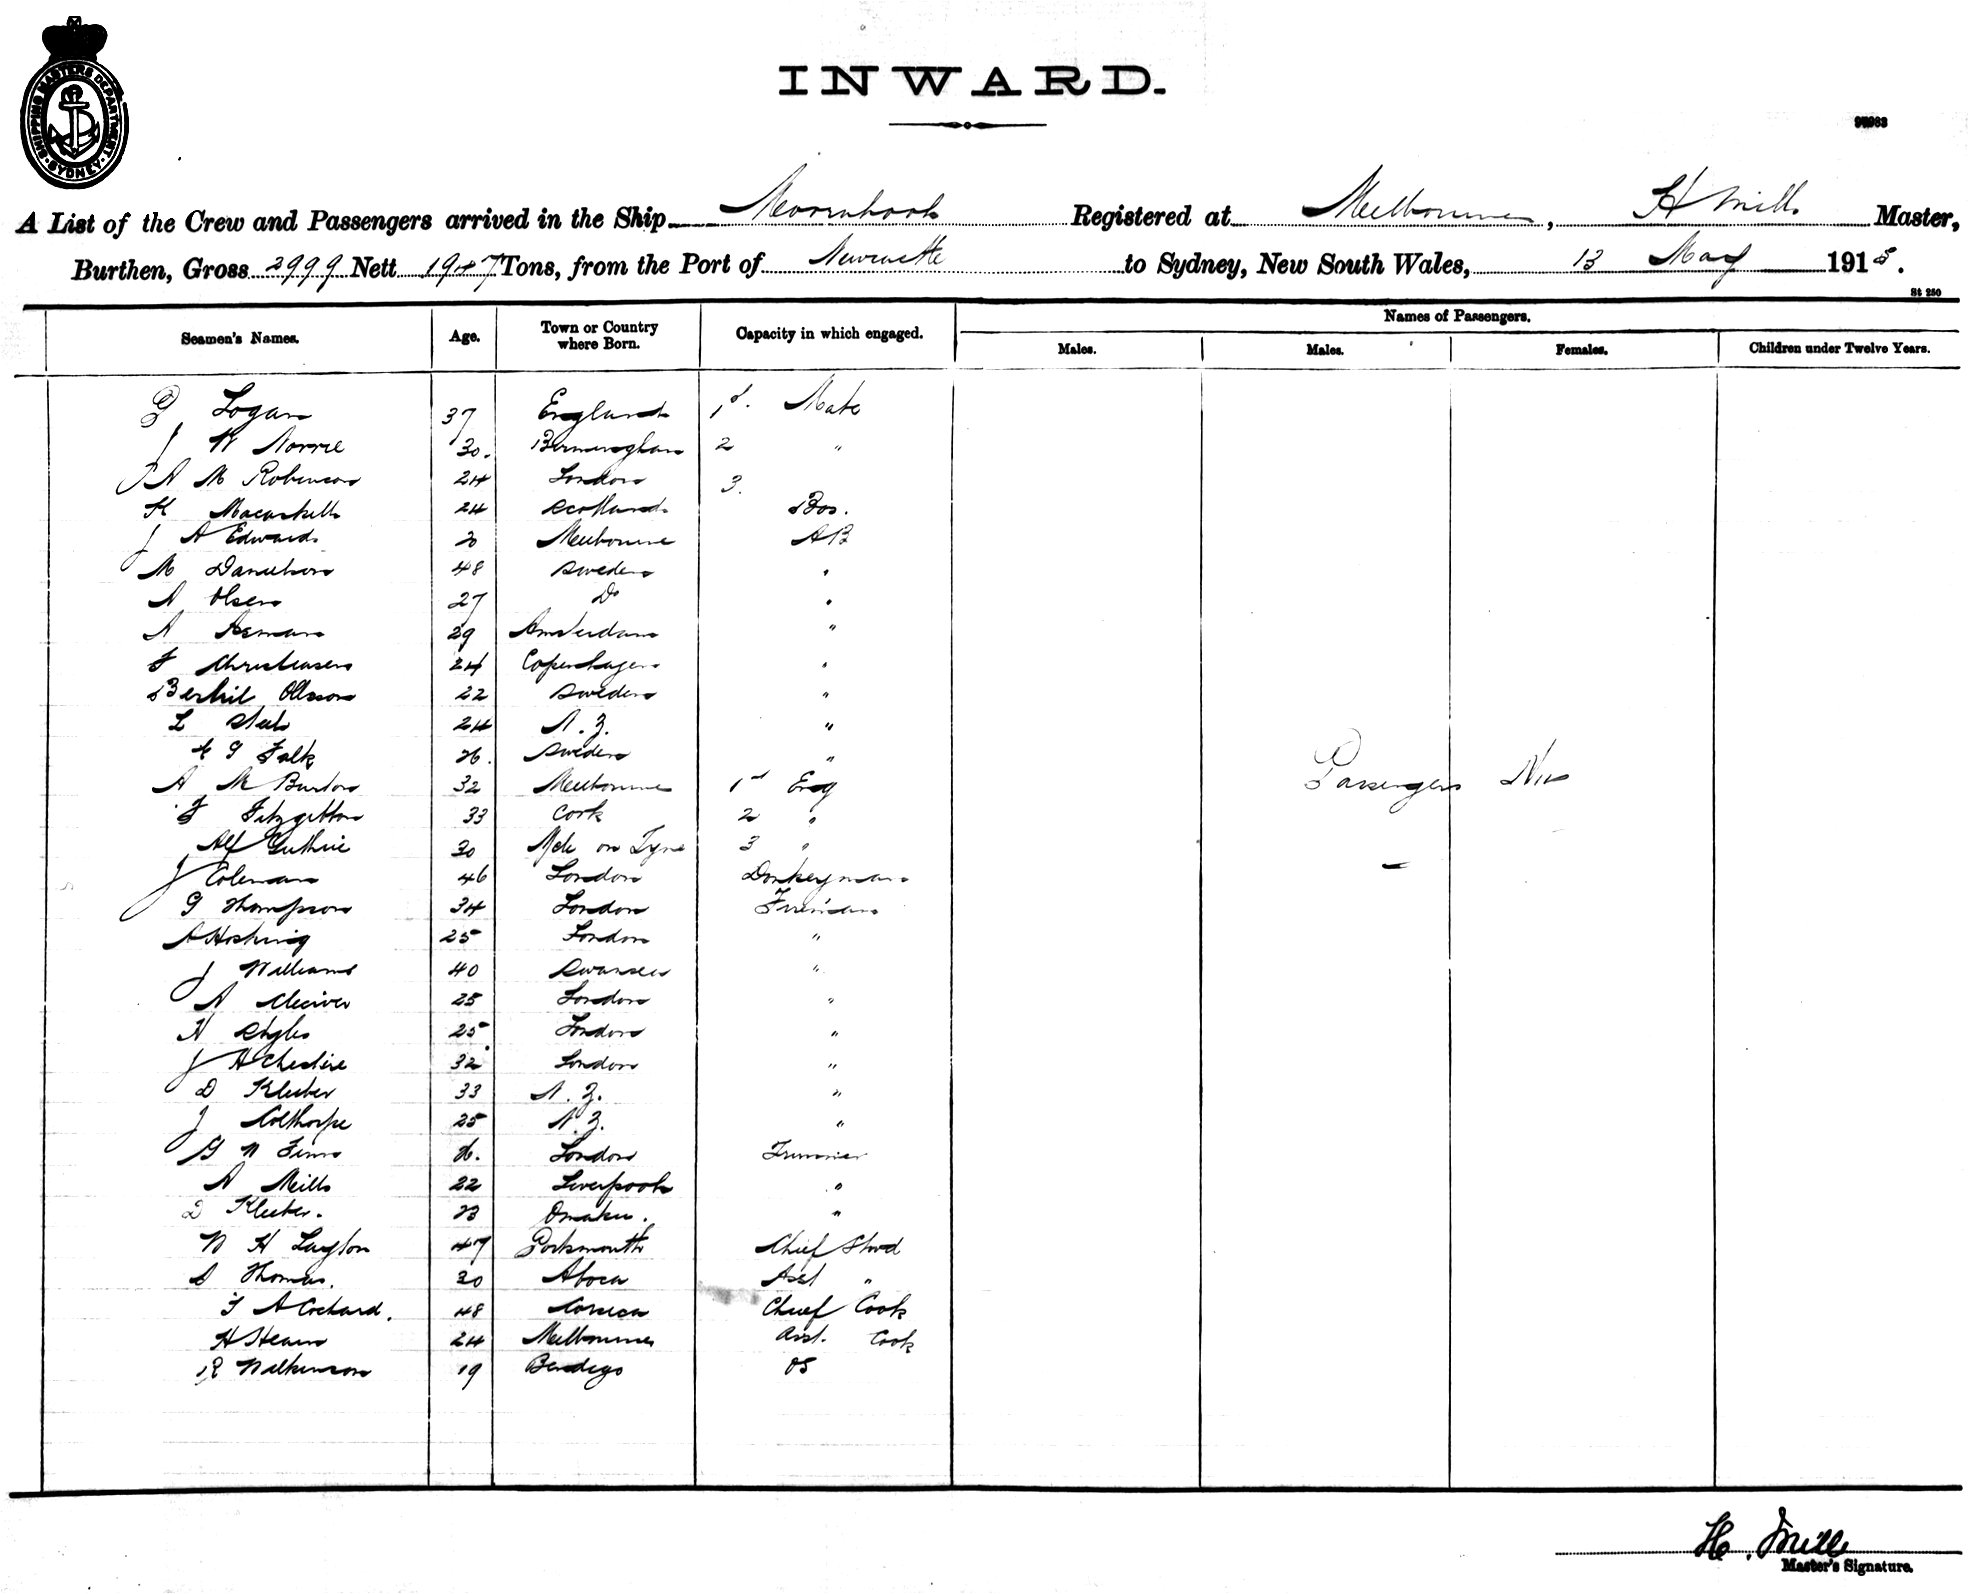 SHIPPING MASTERS DEPARTMENT · SYDNEY ·
INWARD.
A List of the Crew and Passengers arrived in the Ship Moorabool Registered at Melbourne, H Mills Master,
Burthen, Gross 2999 Nett 1947 Tons, from the Port of Newcastle to Sydney, New South Wales, 13 May 1915.
St 250
Seamen's Names. Age. Town or Country where Born. Capacity in which engaged. Names of Passengers.
Males. Males. Females. Children under Twelve Years.
Logan 37 England 1st. Mate
J W Norrie 30. Birmingham 2 "
A M Robinson 24 London 3.
K Macaskill 24 Scotland Bos.
J A Edwards 20 Melbourne AB
M Danielson 48 Sweden "
A Olsen 27 Do "
A 29 Amsterdam "
F Christensen 24 Copenhagen "
Bertil Olsson 22 Sweden "
L Steele 24 N. Z. "
G Falk 26. Sweden "
A M Burton 32 Melbourne 1st Eng
F Fitzgibbon 33 Cork 2 "
Alf Guthrie 30 Ncle on Tyne 3 "
J Coleman 46 London Donkeyman
G Thompson 34 London Fireman
A Hosking 25 London "
J Williams 40 Swansea "
A 25 London "
H 25 London "
J H Cheshire 32 London "
D Kleeber 33 N. Z. "
J Colthorpe 25 N. Z. "
G W Finn 26. London Trimmer
A Mills 22 Liverpool "
D Kleeber. 23 Omaku. "
W H Layton 47 Portsmouth Chief Stwd
D Thomas. 30 Aboca Asst "
F A Cochard. 48 Corsica Chief Cook
H Hearn 24 Melbourne Asst. Cook
R Wilkinson 19 Bendigo OS
Passengers Nil
H. Mills
Master's Signature.